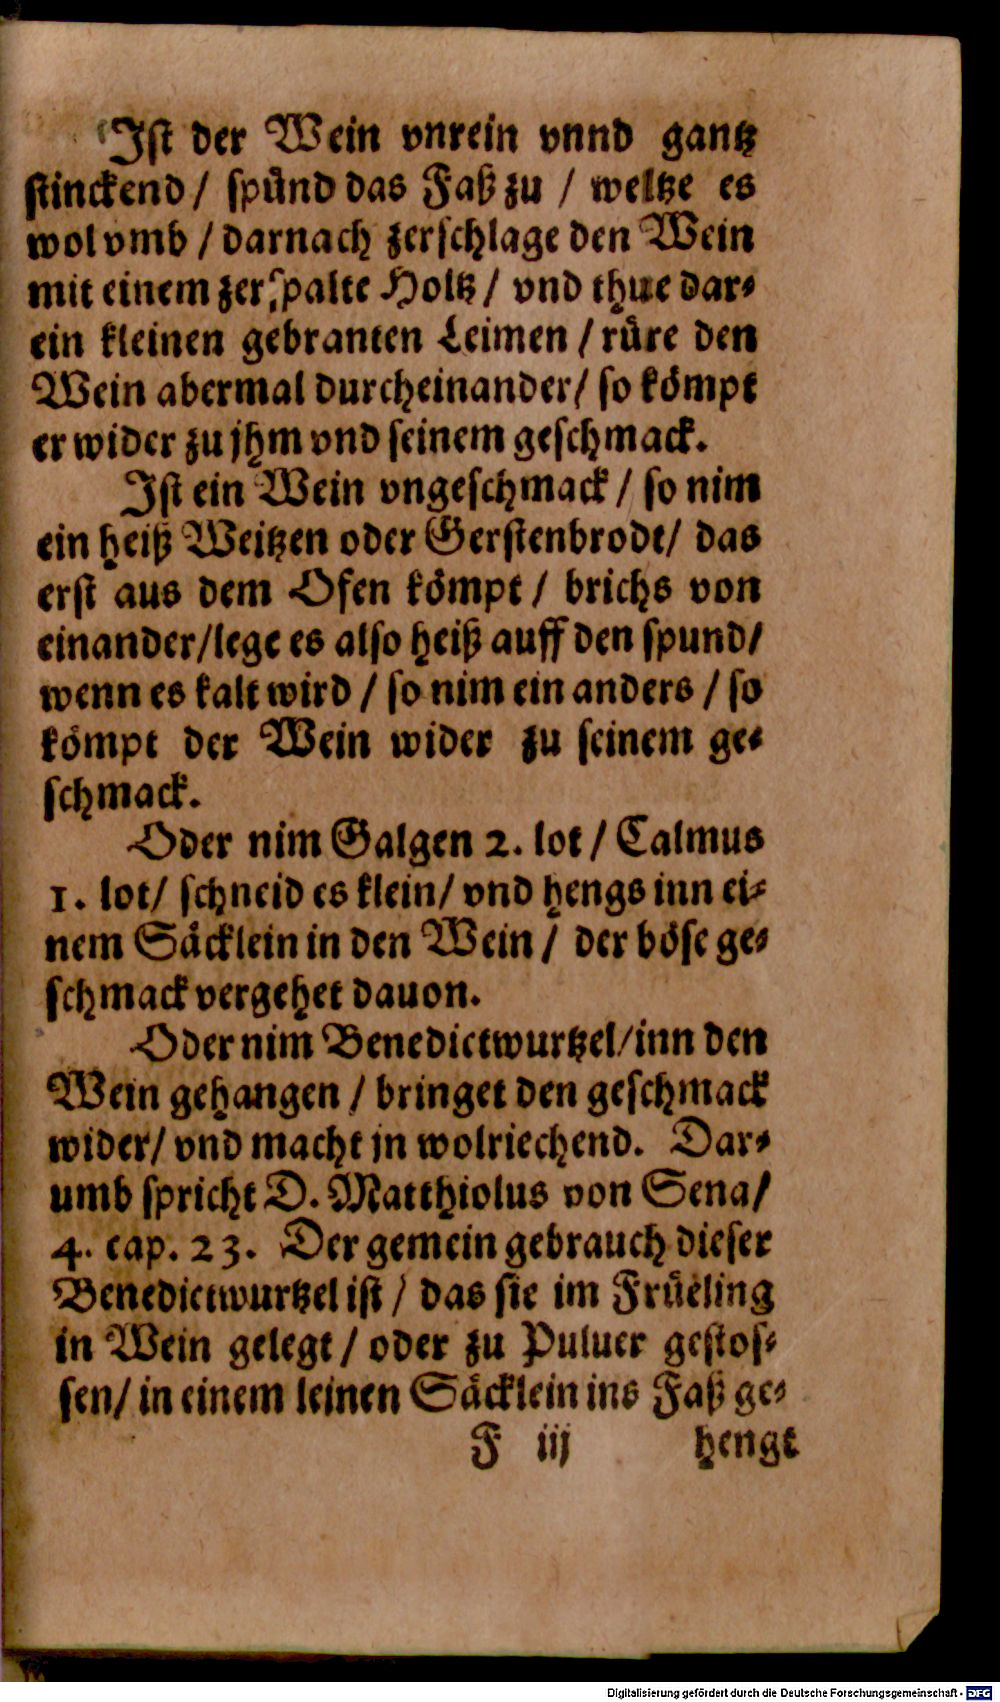 Ist der Wein vnrein vnnd gantz
stinckend / spünd das Faß zu / weltze es
wol vmb / darnach zerschlage den Wein
mit einem zerspalte Holtz / vnd thue dar⸗
ein kleinen gebranten Leimen / rüre den
Wein abermal durcheinander / so kömpt
er wider zu jhm vnd seinem geschmack.
Ist ein Wein vngeschmack / so nim
ein heiß Weitzen oder Gerstenbrodt / das
erst aus dem Ofen kömpt / brichs von
einander / lege es also heiß auff den spund /
wenn es kalt wird / so nim ein anders / so
kömpt der Wein wider zu seinem ge⸗
schmack.
Oder nim Galgen 2. lot / Calmus
1. lot / schneid es klein / vnd hengs inn ei⸗
nem Säcklein in den Wein / der böse ge⸗
schmack vergehet dauon.
Oder nim Benedictwurtzel / inn den
Wein gehangen / bringet den geschmack
wider / vnd macht jn wolriechend. Dar⸗
umb spricht D. Matthiolus von Sena /
4. cap. 23. Der gemein gebrauch dieser
Benedictwurtzel ist / das sie im Früeling
in Wein gelegt / oder zu Puluer gestos⸗
sen / in einem leinen Säcklein ins Faß ge⸗
F iij hengt
Digitalisierung gefördert durch die Deutsche Forschungsgemeinschaft - DFG